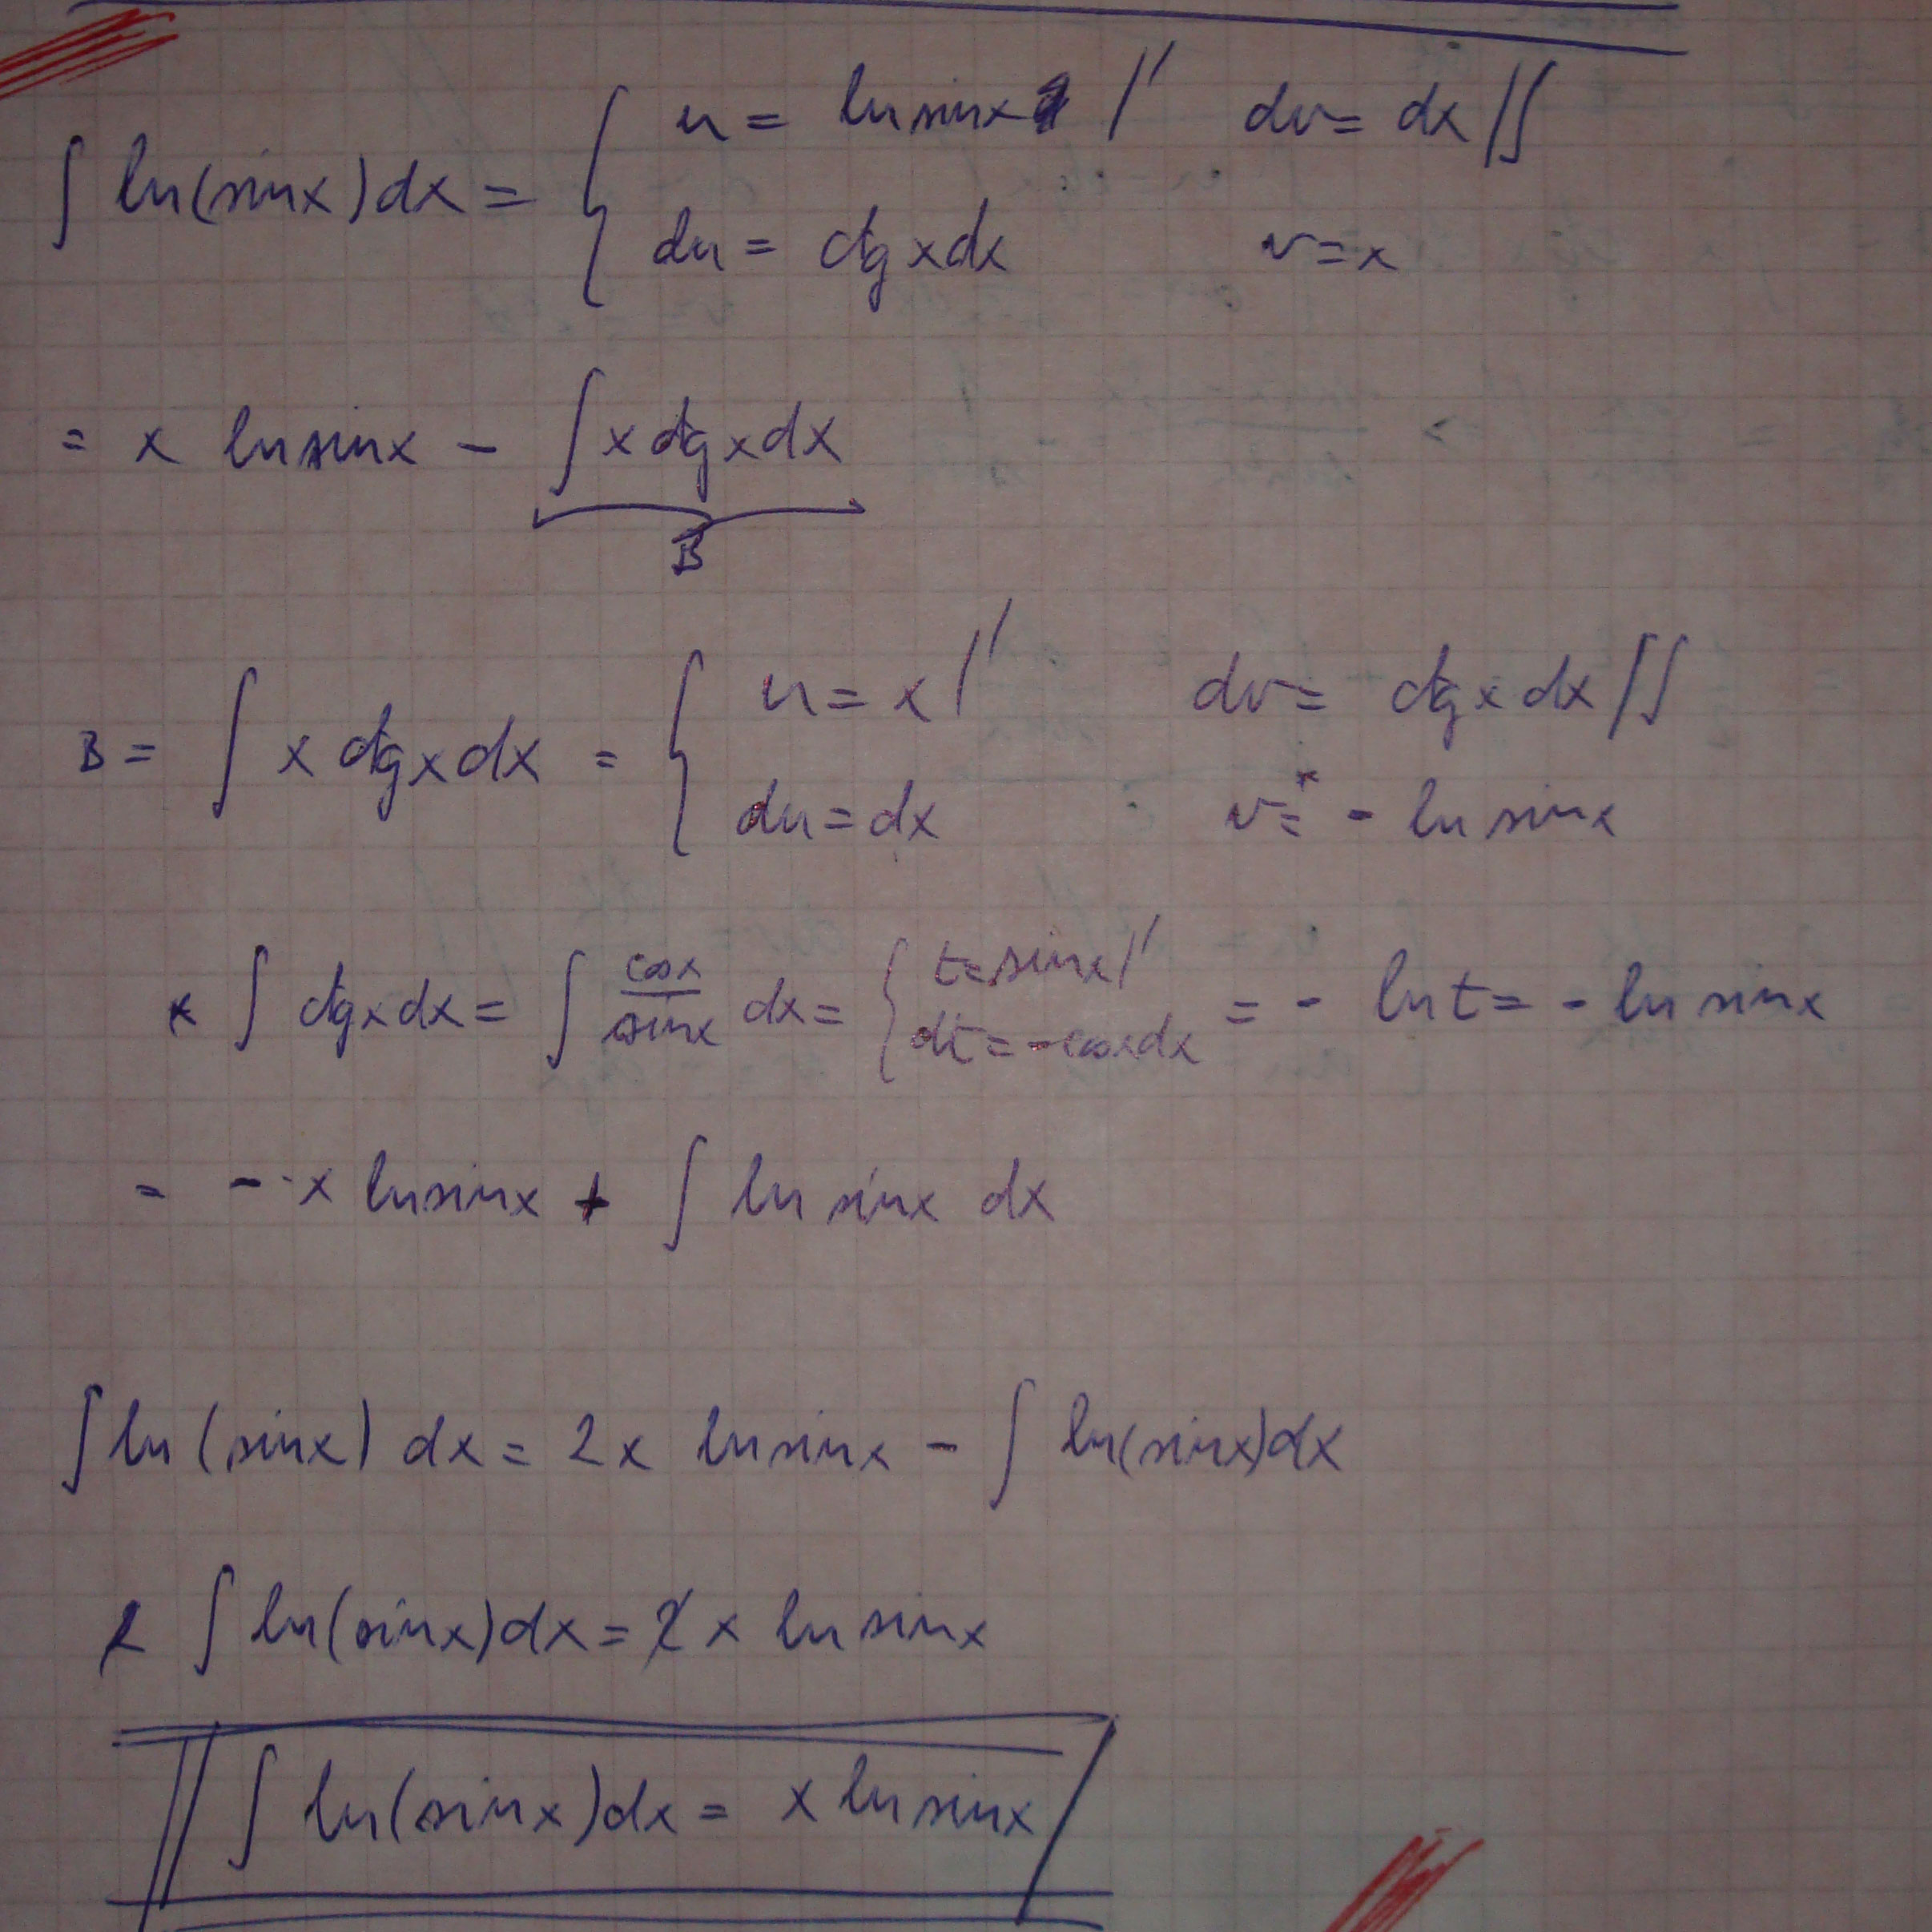 ∫ ln(sinx)dx = { u = ln sinx /′ dv = dx /∫
du = ctgxdx v = x
= x ln sinx - ∫ x ctgxdx
B
B = ∫ x ctgxdx = { u = x /′ dv = ctgxdx /∫
du = dx v =* - ln sinx
* ∫ ctgxdx = ∫ cosx/sinx dx = { t = sinx /′ dt = -cosxdx = - ln t = - ln sinx
= - x ln sinx + ∫ ln sinx dx
∫ ln(sinx) dx = 2x ln sinx - ∫ ln(sinx)dx
2 ∫ ln(sinx)dx = 2x ln sinx
∫ ln(sinx)dx = x ln sinx